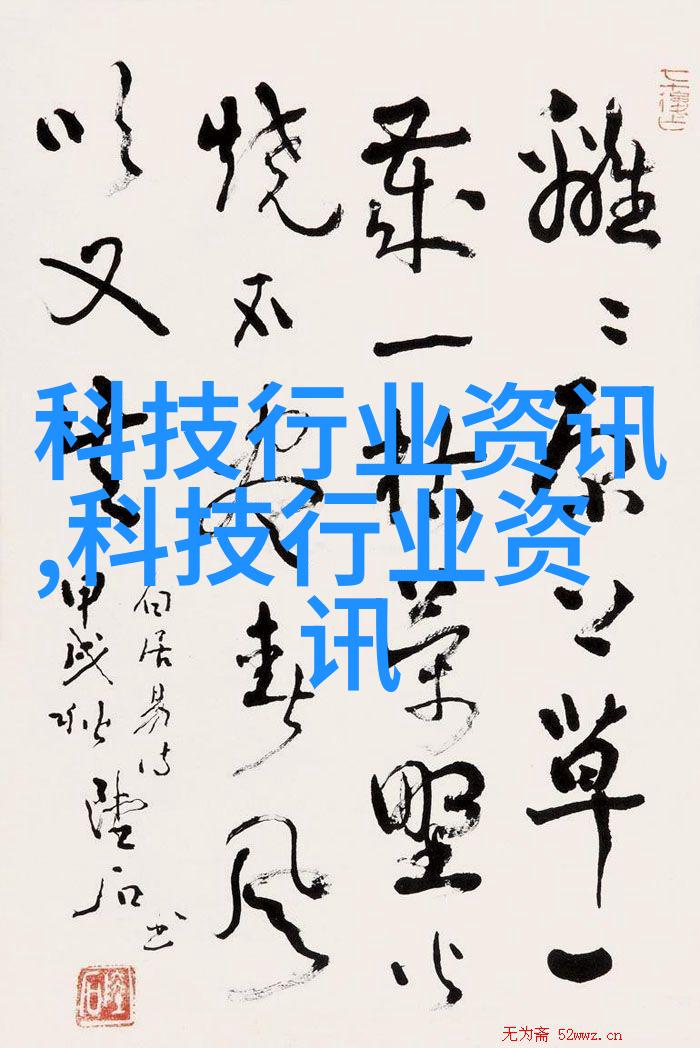 離〻原上草一
歲一枯榮野火
烧不盡春风
吹又生
白居易诗
甲戌秋 陸石书
科技行业资讯
,科技行业资
讯
无为斋 52wwz.cn